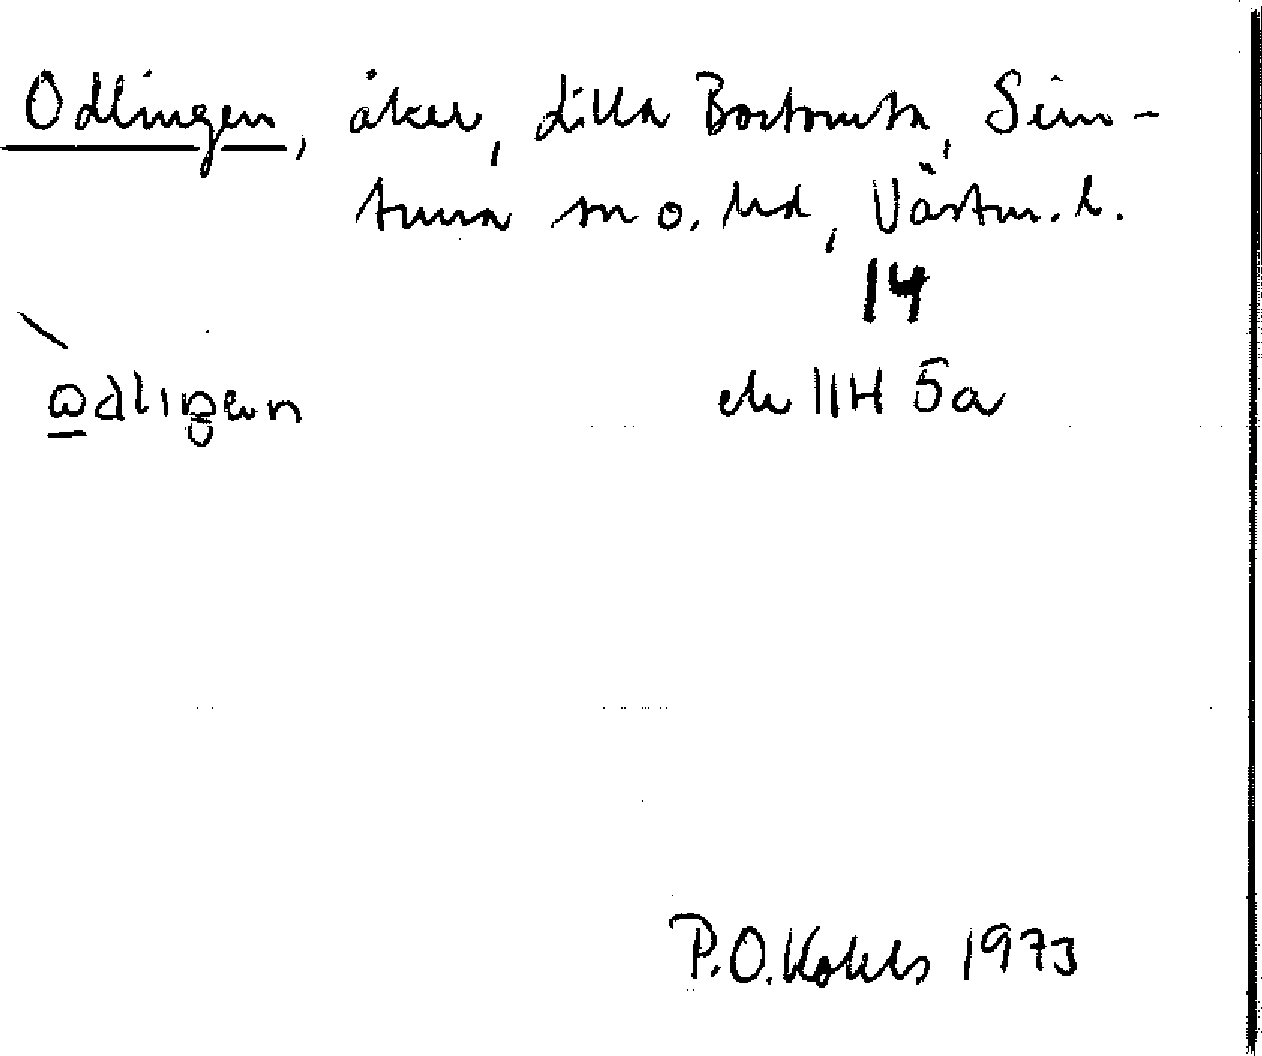 Odlingen, åker, Lilla Bortomta, Sim-
tuna sn o. hd, Västm. l.
14
ek 11H 5a
P.O. Kohls 1973